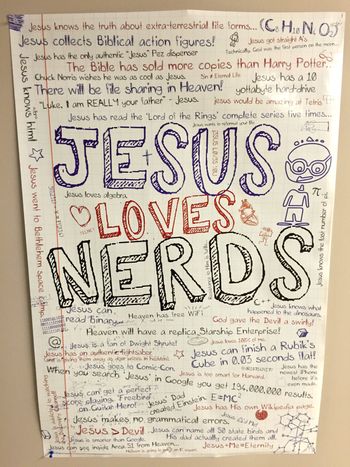 Jesus knows the truth about extra-terrestrial life forms... (C8 H10 N4 O2)
Jesus collects Biblical action figures!
Jesus got straight A's
Technically, God was the first person on the moon...
Jesus has the only authentic "Jesus" Pez dispenser
The "Bible" has sold more copies than Harry Potter.
Chuck Norris wishes he was as cool as Jesus.
Sin ≠ Eternal Life
Jesus has a 10
There will be file sharing in Heaven!
yottabyte harddrive
"Luke, I am REALLY your father" - Jesus.
Jesus would be amazing at Tetris
Jesus has read the 'Lord of the Rings' complete series five times...
Jesus knows html
JESUS
Jesus loves algebra.
LOVES
π
NERDS
Jesus went to Bethlehem space camp
Jesus knows the last number of pi.
C++
Jesus can
read Binary
Heaven has free WiFi
Jesus knows what
happened to the dinosaurs.
God gave the Devil a swirly!
Heaven will have a replica Starship Enterprise!
Jesus is a fan of Dwight Shrute!
Jesus loves 100% of me.
Jesus has an authentic lightsaber
Jesus can finish a Rubik's
Cube in 0.03 seconds flat!
Jesus goes to Comic-Con.
Jesus is too smart for Harvard.
When you search 'Jesus' in Google you get 194,000,000 results.
Jesus has the
newest iPhone
before it's
even made.
Jesus can get a perfect
score playing 'Freebird'
on Guitar Hero!
Jesus' Dad
created Einstein
E=MC²
Jesus has His own Wikipedia page.
Jesus makes no grammatical errors.
Jesus > Devil
Jesus can name all 50 state birds and
His dad actually created them all.
Jesus is smarter than Google.
Jesus can see inside Area 51 from Heaven...
Jesus+Me=Eternity